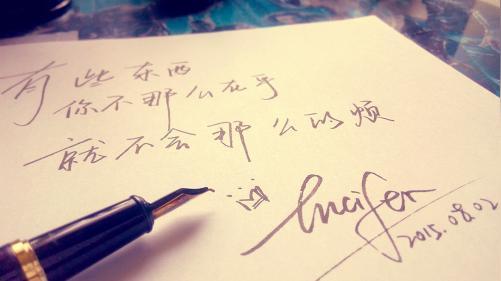 有些东西
你不那么在乎
就不会那么的烦
lucifer
2015.08.02